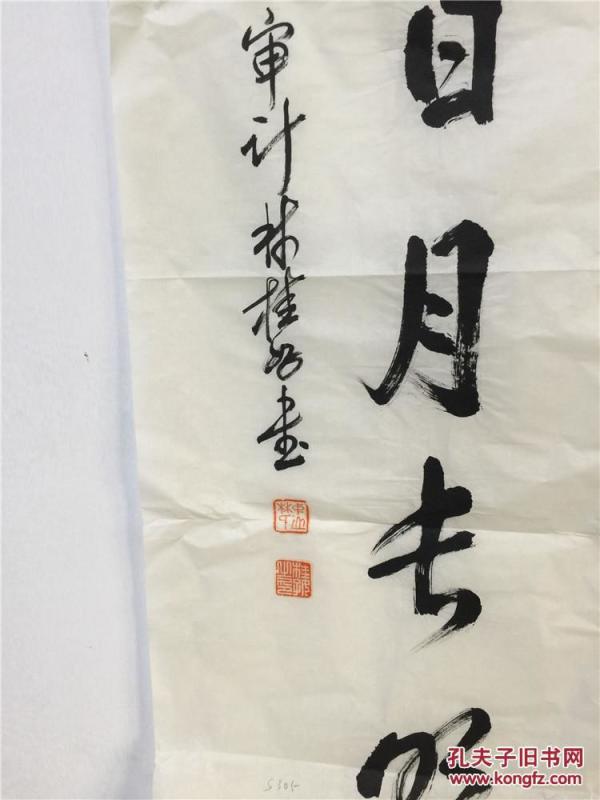 日月长明
审计林桂芬书
S305
孔夫子旧书网
www.kongfz.com